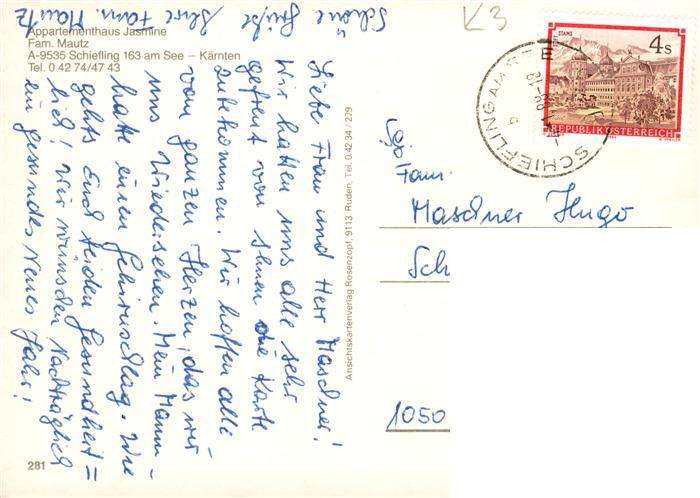 Appartementhaus Jasmine
Fam. Mautz
A-9535 Schiefling 163 am See – Kärnten
Tel. 0 42 74/47 43
K3
STAMS
4 S
REPUBLIK ÖSTERREICH
SCHIEFLING AM SEE
Fam.
Maschner Hugo
Sch
1050
Liebe Frau und Herr Maschner!
Wir hatten uns alle sehr
gefreut von Ihnen die Karte
zubekommen. Wir hoffen alle
vom ganzen Herzen, das wir
uns Wiedersehen. Mein Mann
hatte einen Gehirnschlag. Wie
gehts Euch beiden Gesundheit=
lich! Wir wünschen Nachträglich
ein gesundes Neues Jahr!
Schöne Grüße Ihre Fam. Mautz
Ansichtskartenverlag Rosenzopf, 9113 Ruden, Tel. 0 42 34 / 279
281